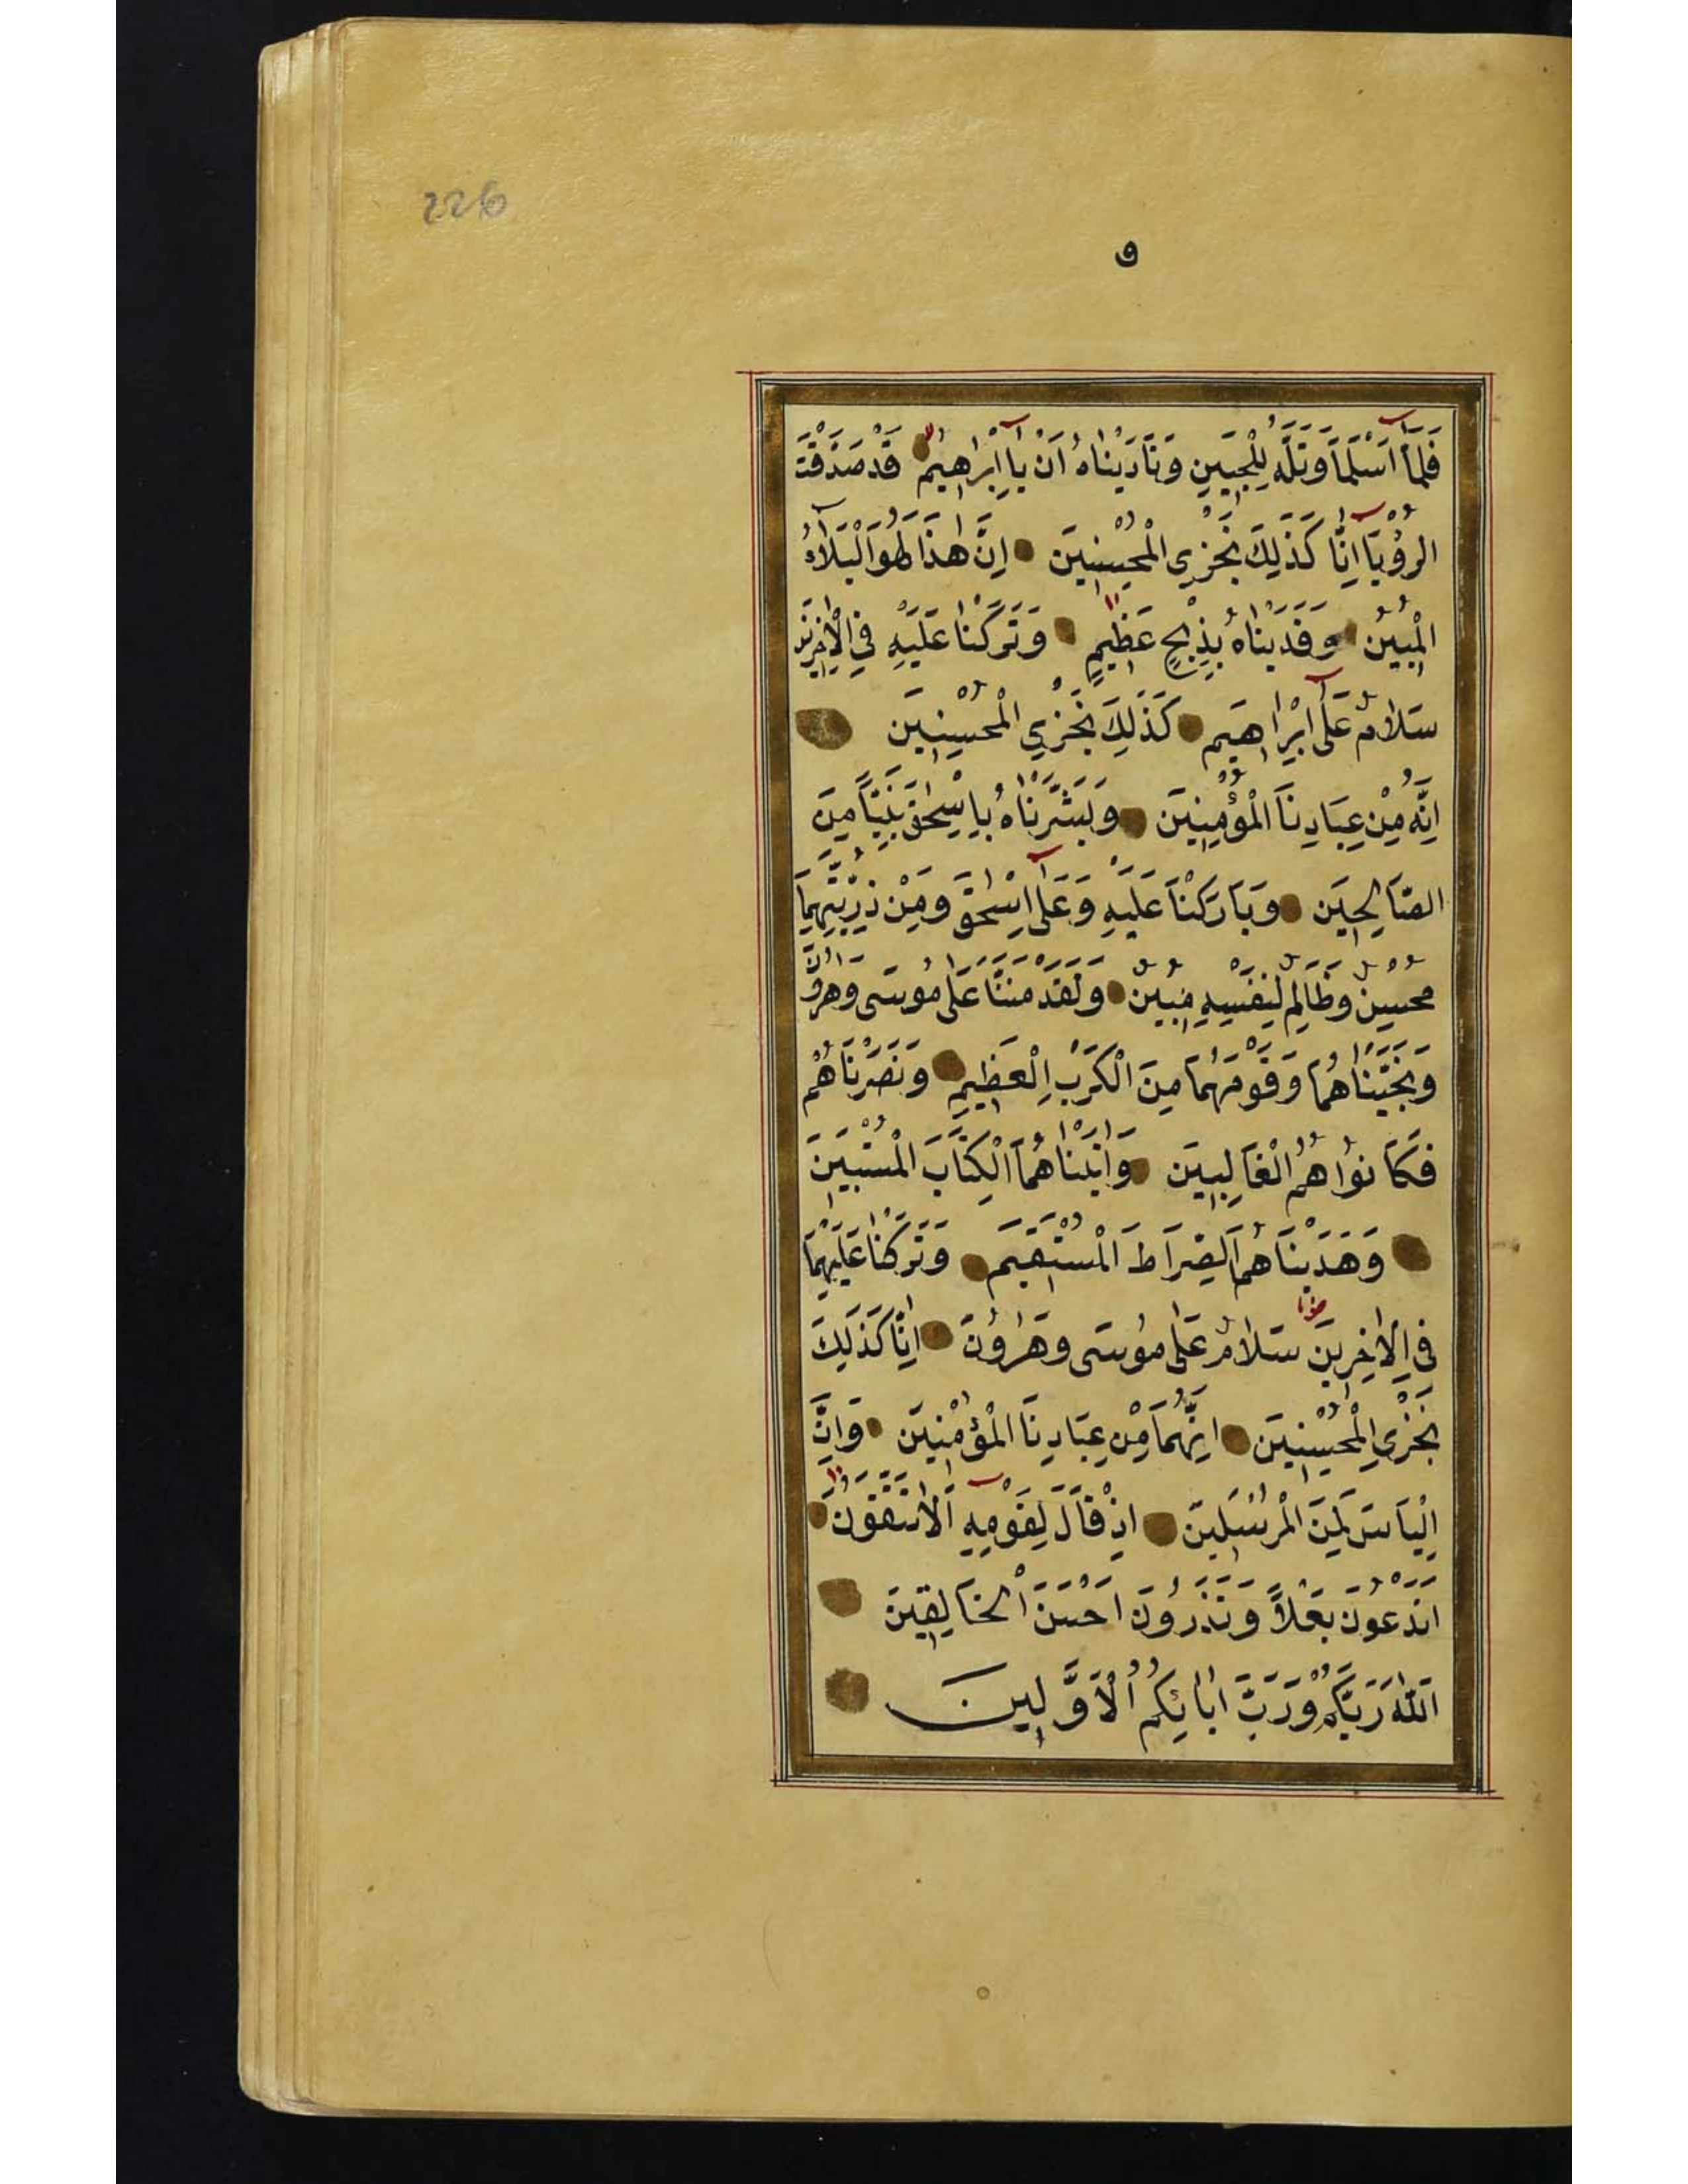 226
و
فَلَمَّا اَسْلَمَا وَتَلَّهُ لِلْجَبِينِ وَنَادَيْنَاهُ اَنْ يَا اِبْرَاهِيمُ قَدْ صَدَّقْتَ
الرُّؤْيَا اِنَّا كَذَلِكَ نَجْزِي الْمُحْسِنِينَ اِنَّ هٰذَا لَهُوَ الْبَلَاءُ
الْمُبِينُ وَفَدَيْنَاهُ بِذِبْحٍ عَظِيمٍ وَتَرَكْنَا عَلَيْهِ فِي الْاٰخِرِينَ
سَلَامٌ عَلَى اِبْرَاهِيمَ كَذَلِكَ نَجْزِي الْمُحْسِنِينَ
اِنَّهُ مِنْ عِبَادِنَا الْمُؤْمِنِينَ وَبَشَّرْنَاهُ بِاِسْحٰقَ نَبِيًّا مِنَ
الصَّالِحِينَ وَبَارَكْنَا عَلَيْهِ وَعَلَى اِسْحٰقَ وَمِنْ ذُرِّيَّتِهِمَا
مُحْسِنٌ وَظَالِمٌ لِنَفْسِهِ مُبِينٌ وَلَقَدْ مَنَنَّا عَلَى مُوسَى وَهٰرُونَ
وَنَجَّيْنَاهُمَا وَقَوْمَهُمَا مِنَ الْكَرْبِ الْعَظِيمِ وَنَصَرْنَاهُمْ
فَكَانُوا هُمُ الْغَالِبِينَ وَاٰتَيْنَاهُمَا الْكِتَابَ الْمُسْتَبِينَ
وَهَدَيْنَاهُمَا الصِّرَاطَ الْمُسْتَقِيمَ وَتَرَكْنَا عَلَيْهِمَا
فِي الْاٰخِرِينَ سَلَامٌ عَلَى مُوسَى وَهٰرُونَ اِنَّا كَذَلِكَ
نَجْزِي الْمُحْسِنِينَ اِنَّهُمَا مِنْ عِبَادِنَا الْمُؤْمِنِينَ وَاِنَّ
اِلْيَاسَ لَمِنَ الْمُرْسَلِينَ اِذْ قَالَ لِقَوْمِهِ اَلَا تَتَّقُونَ
اَتَدْعُونَ بَعْلًا وَتَذَرُونَ اَحْسَنَ الْخَالِقِينَ
اَللّٰهَ رَبَّكُمْ وَرَبَّ اٰبَائِكُمُ الْاَوَّلِينَ